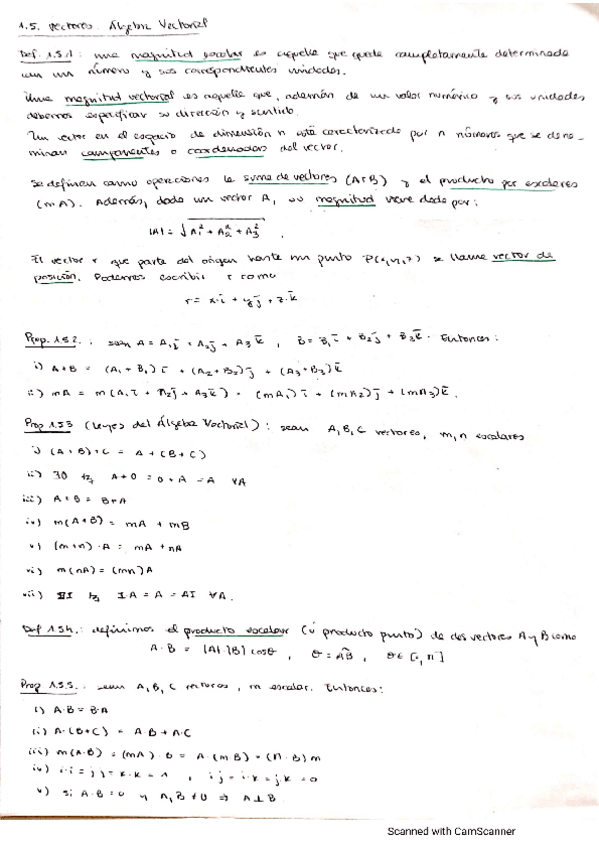 1.5. Vectores. Álgebra Vectorial
Def. 1.5.1: una magnitud escalar es aquella que queda completamente determinada
con un número y sus correspondientes unidades.
Una magnitud vectorial es aquella que, además de un valor numérico y sus unidades
debemos especificar su dirección y sentido.
Un vector en el espacio de dimensión n está caracterizado por n números que se deno-
minan componentes o coordenadas del vector.
Se definen como operaciones la suma de vectores (A+B) y el producto por escalares
(mA). Además, dado un vector A, su magnitud viene dada por:
|A| = √A₁² + A₂² + A₃² .
El vector r que parte del origen hasta un punto P(x,y,z) se llama vector de
posición. Podemos escribir r como
r = x·i + y j + z·k
Prop. 1.5.2.: sean A = A₁i + A₂j + A₃k , B = B₁i + B₂j + B₃k. Entonces:
i) A+B = (A₁+B₁)i + (A₂+B₂)j + (A₃+B₃)k
ii) mA = m(A₁i + A₂j + A₃k) = (mA₁)i + (mA₂)j + (mA₃)k.
Prop 1.5.3 (Leyes del Álgebra Vectorial): sean A,B,C vectores, m,n escalares
i) (A+B)+C = A+(B+C)
ii) ∃0 tq A+0 = 0+A = A ∀A
iii) A+B = B+A
iv) m(A+B) = mA + mB
v) (m+n)·A = mA + nA
vi) m(nA) = (mn)A
vii) ∃I tq I·A = A = AI ∀A.
Def 1.5.4.: definimos el producto escalar (o producto punto) de dos vectores A y B como
A·B = |A|·|B| cosθ , θ = AB , θ∈[0,π]
Prop 1.5.5.: sean A,B,C vectores, m escalar. Entonces:
i) A·B = B·A
ii) A·(B+C) = A·B + A·C
iii) m(A·B) = (mA)·B = A·(mB) = (A·B)m
iv) i·i = j·j = k·k = 1 , i·j = i·k = j·k = 0
v) si A·B = 0 y A,B ≠ 0 ⇒ A⊥B
Scanned with CamScanner